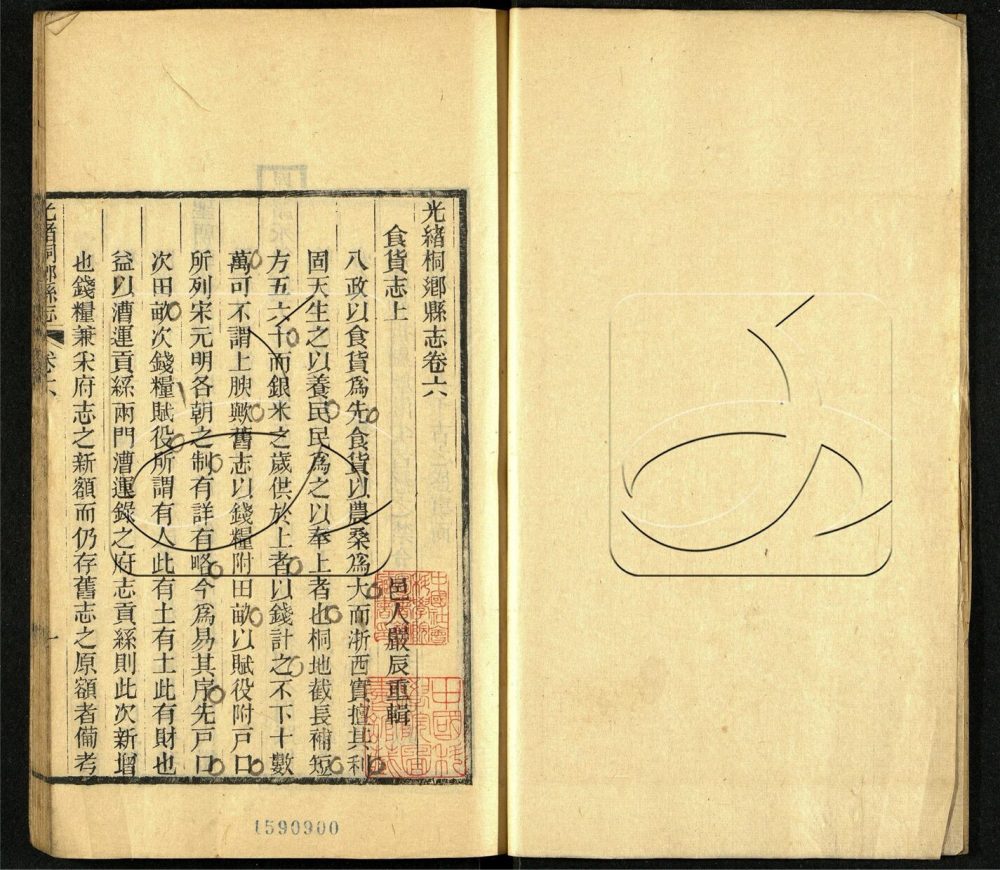 光緒桐鄉縣志卷六
食貨志上
邑人嚴辰重輯
八政以食貨爲先食貨以農桑爲大而浙西實擅其利
固天生之以養民民爲之以奉上者也桐地截長補短
方五六十而銀米之歲供於上者以錢計之不下十數
萬可不謂上腴歟舊志以錢糧附田畝以賦役附戸口
所列宋元明各朝之制有詳有略今爲易其序先戸口
次田畝次錢糧賦役所謂有人此有土有土此有財也
益以漕運貢絲兩門漕運錄之府志貢絲則此次新增
也錢糧兼采府志之新額而仍存舊志之原額者備考
光緒桐鄉縣志
卷六
一
1590900